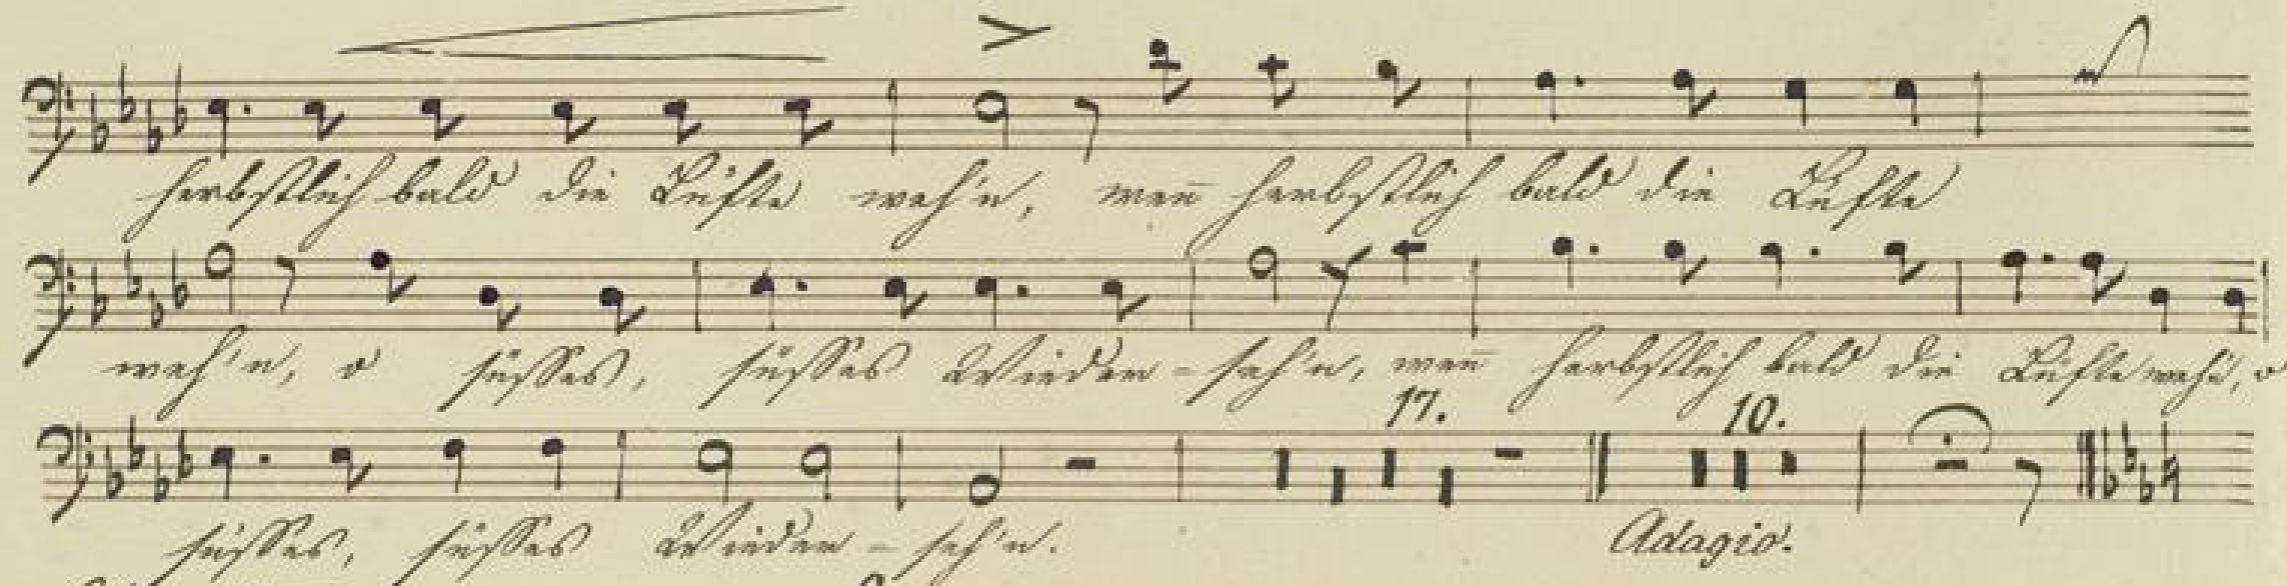 herbstlich bald die Lüfte weh'n, wen̅ herbstlich bald die Lüfte
weh'n, o süsses, süsses Wieder-seh'n, wen̅ herbstlich bald die Lüfte wehn, o
17. 10.
süsses, süsses Wieder-seh'n. Adagio.